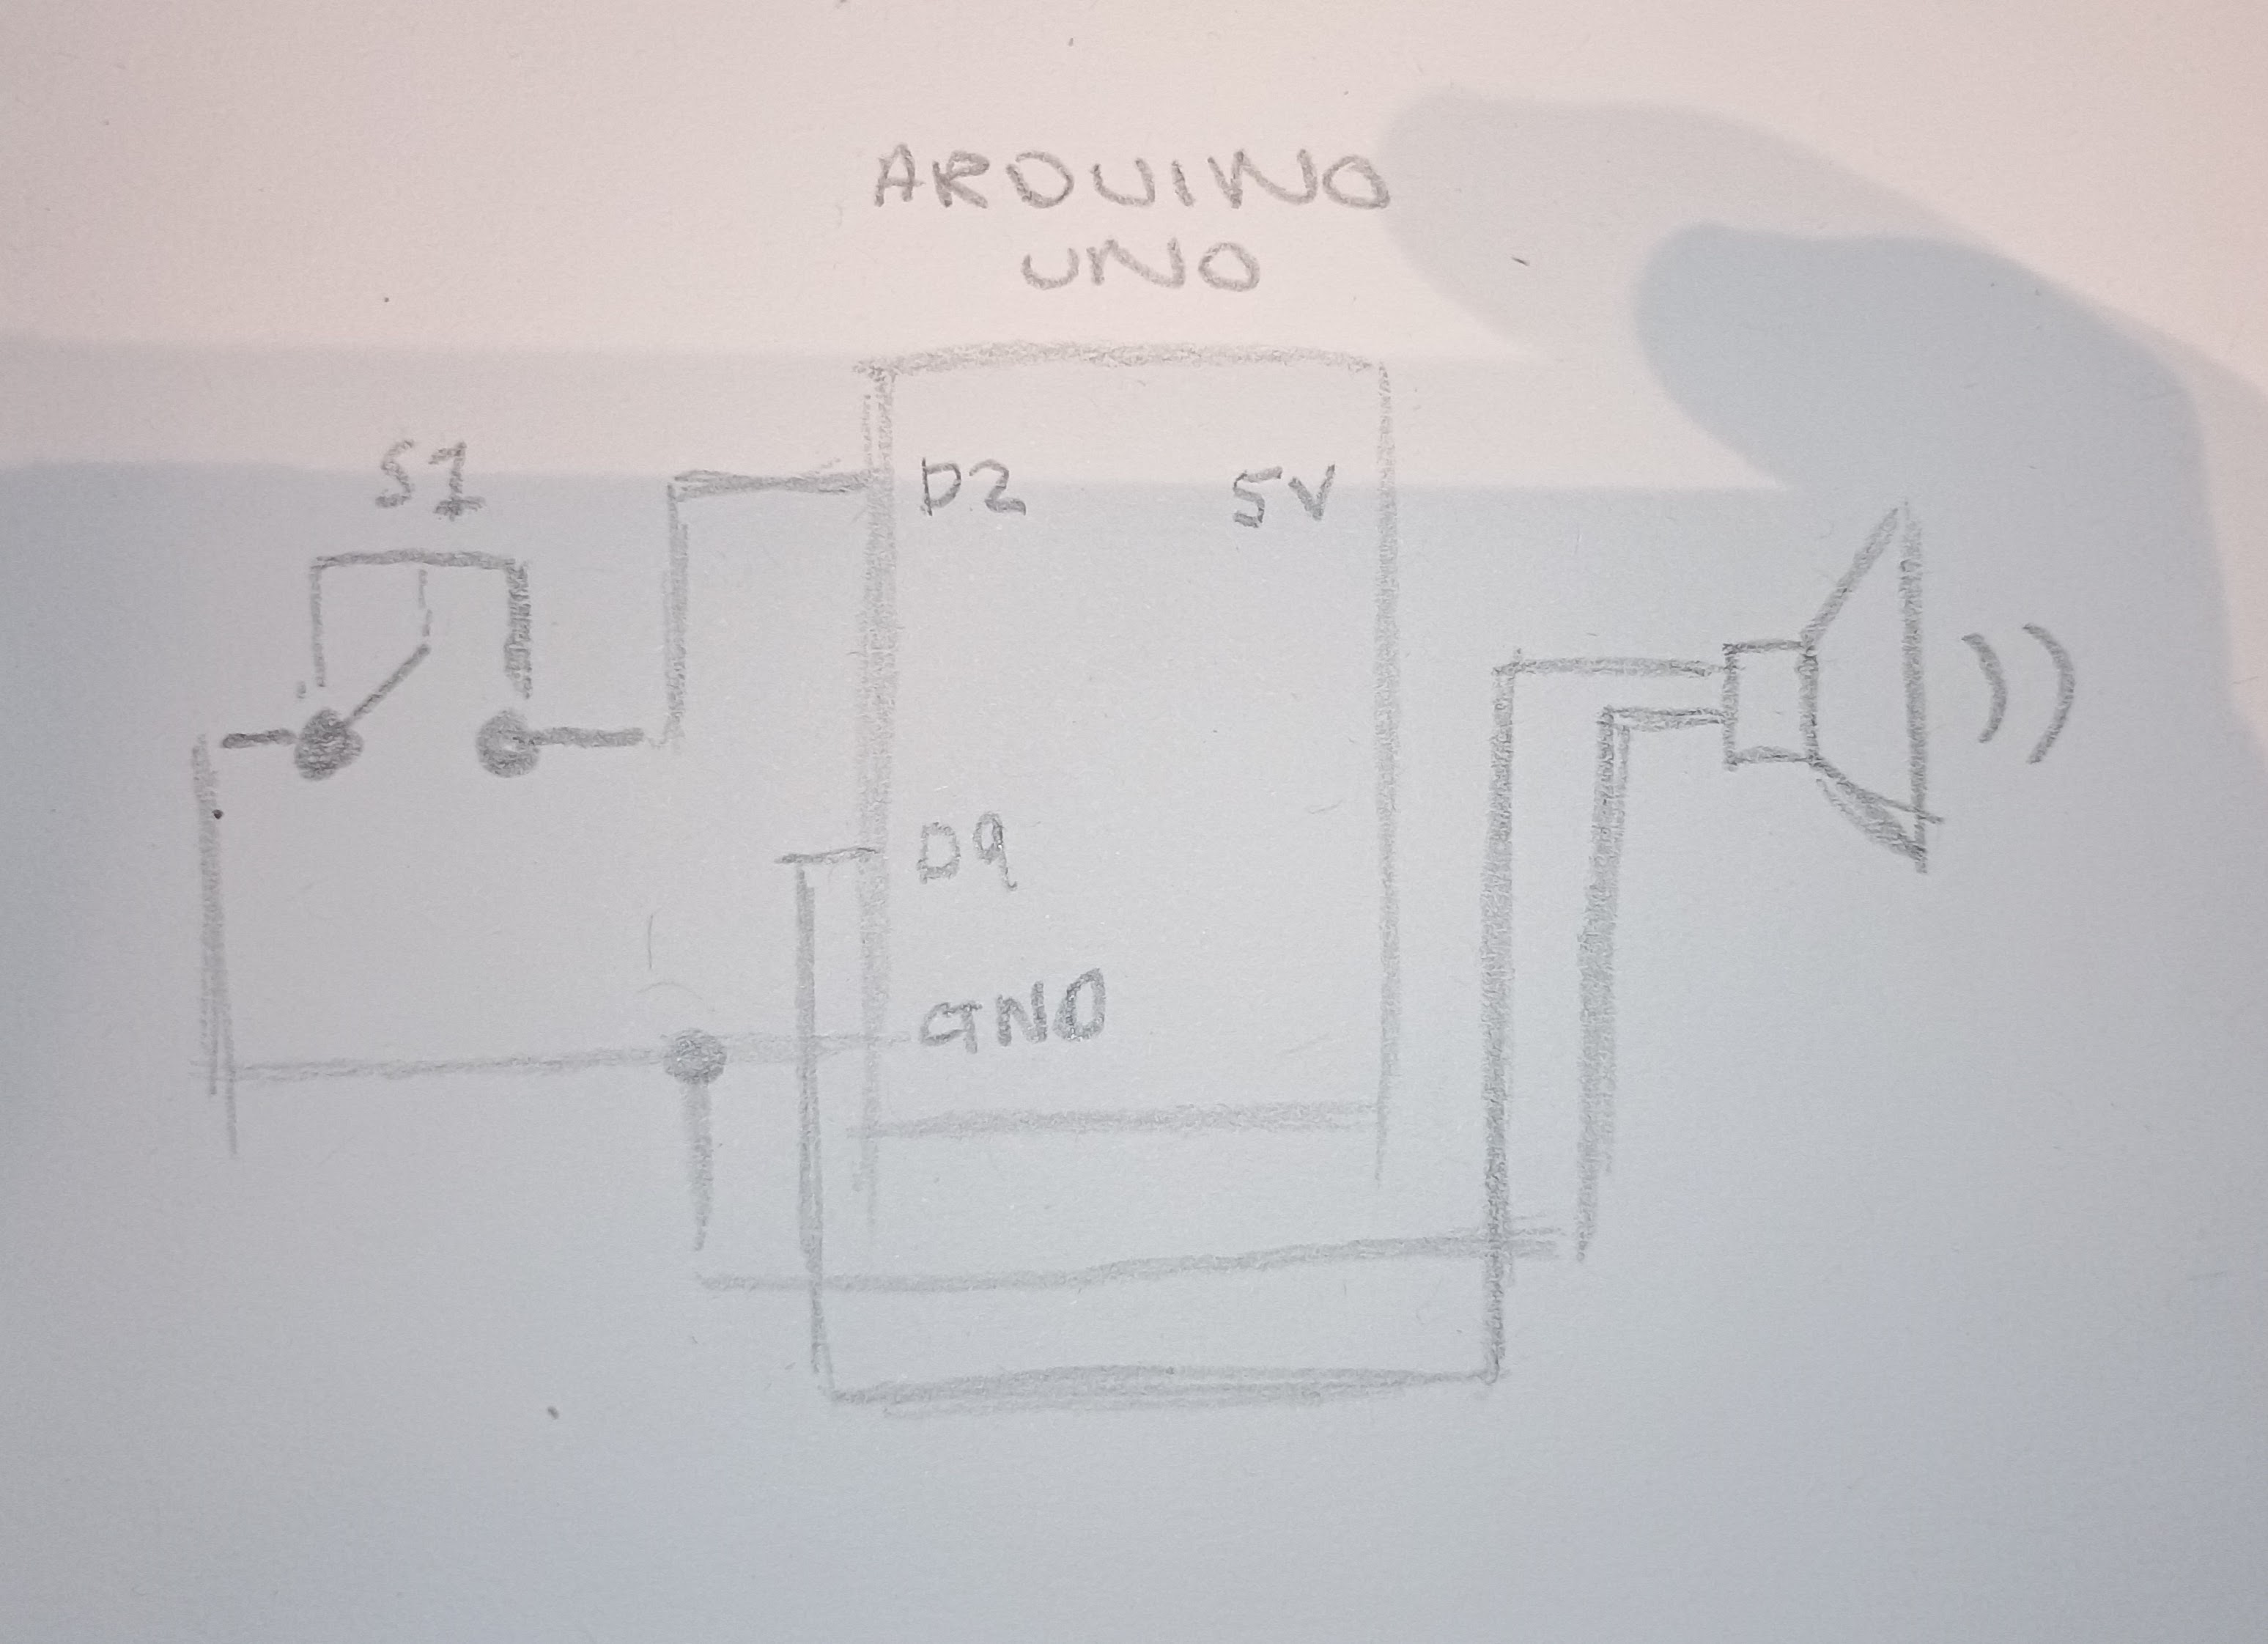 ARDUINO
UNO
S1
D2
5V
D9
GND